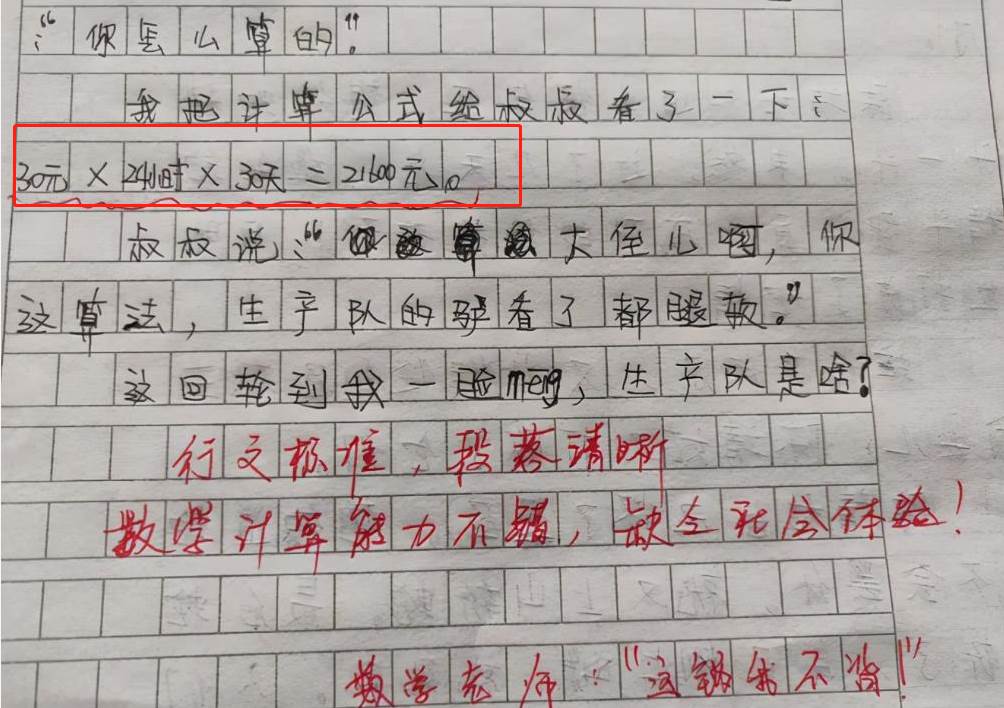 :“你怎么算的”。
我把计算公式给叔叔看了一下:
30元×24小时×30天=21600元。
叔叔说:“大侄儿啊,你
这算法,生产队的驴看了都腿软。”
这回轮到我一脸měng,生产队是啥?
行文标准,段落清晰
数学计算能力不错,缺乏社会体验!
数学老师:“这锅我不背!”